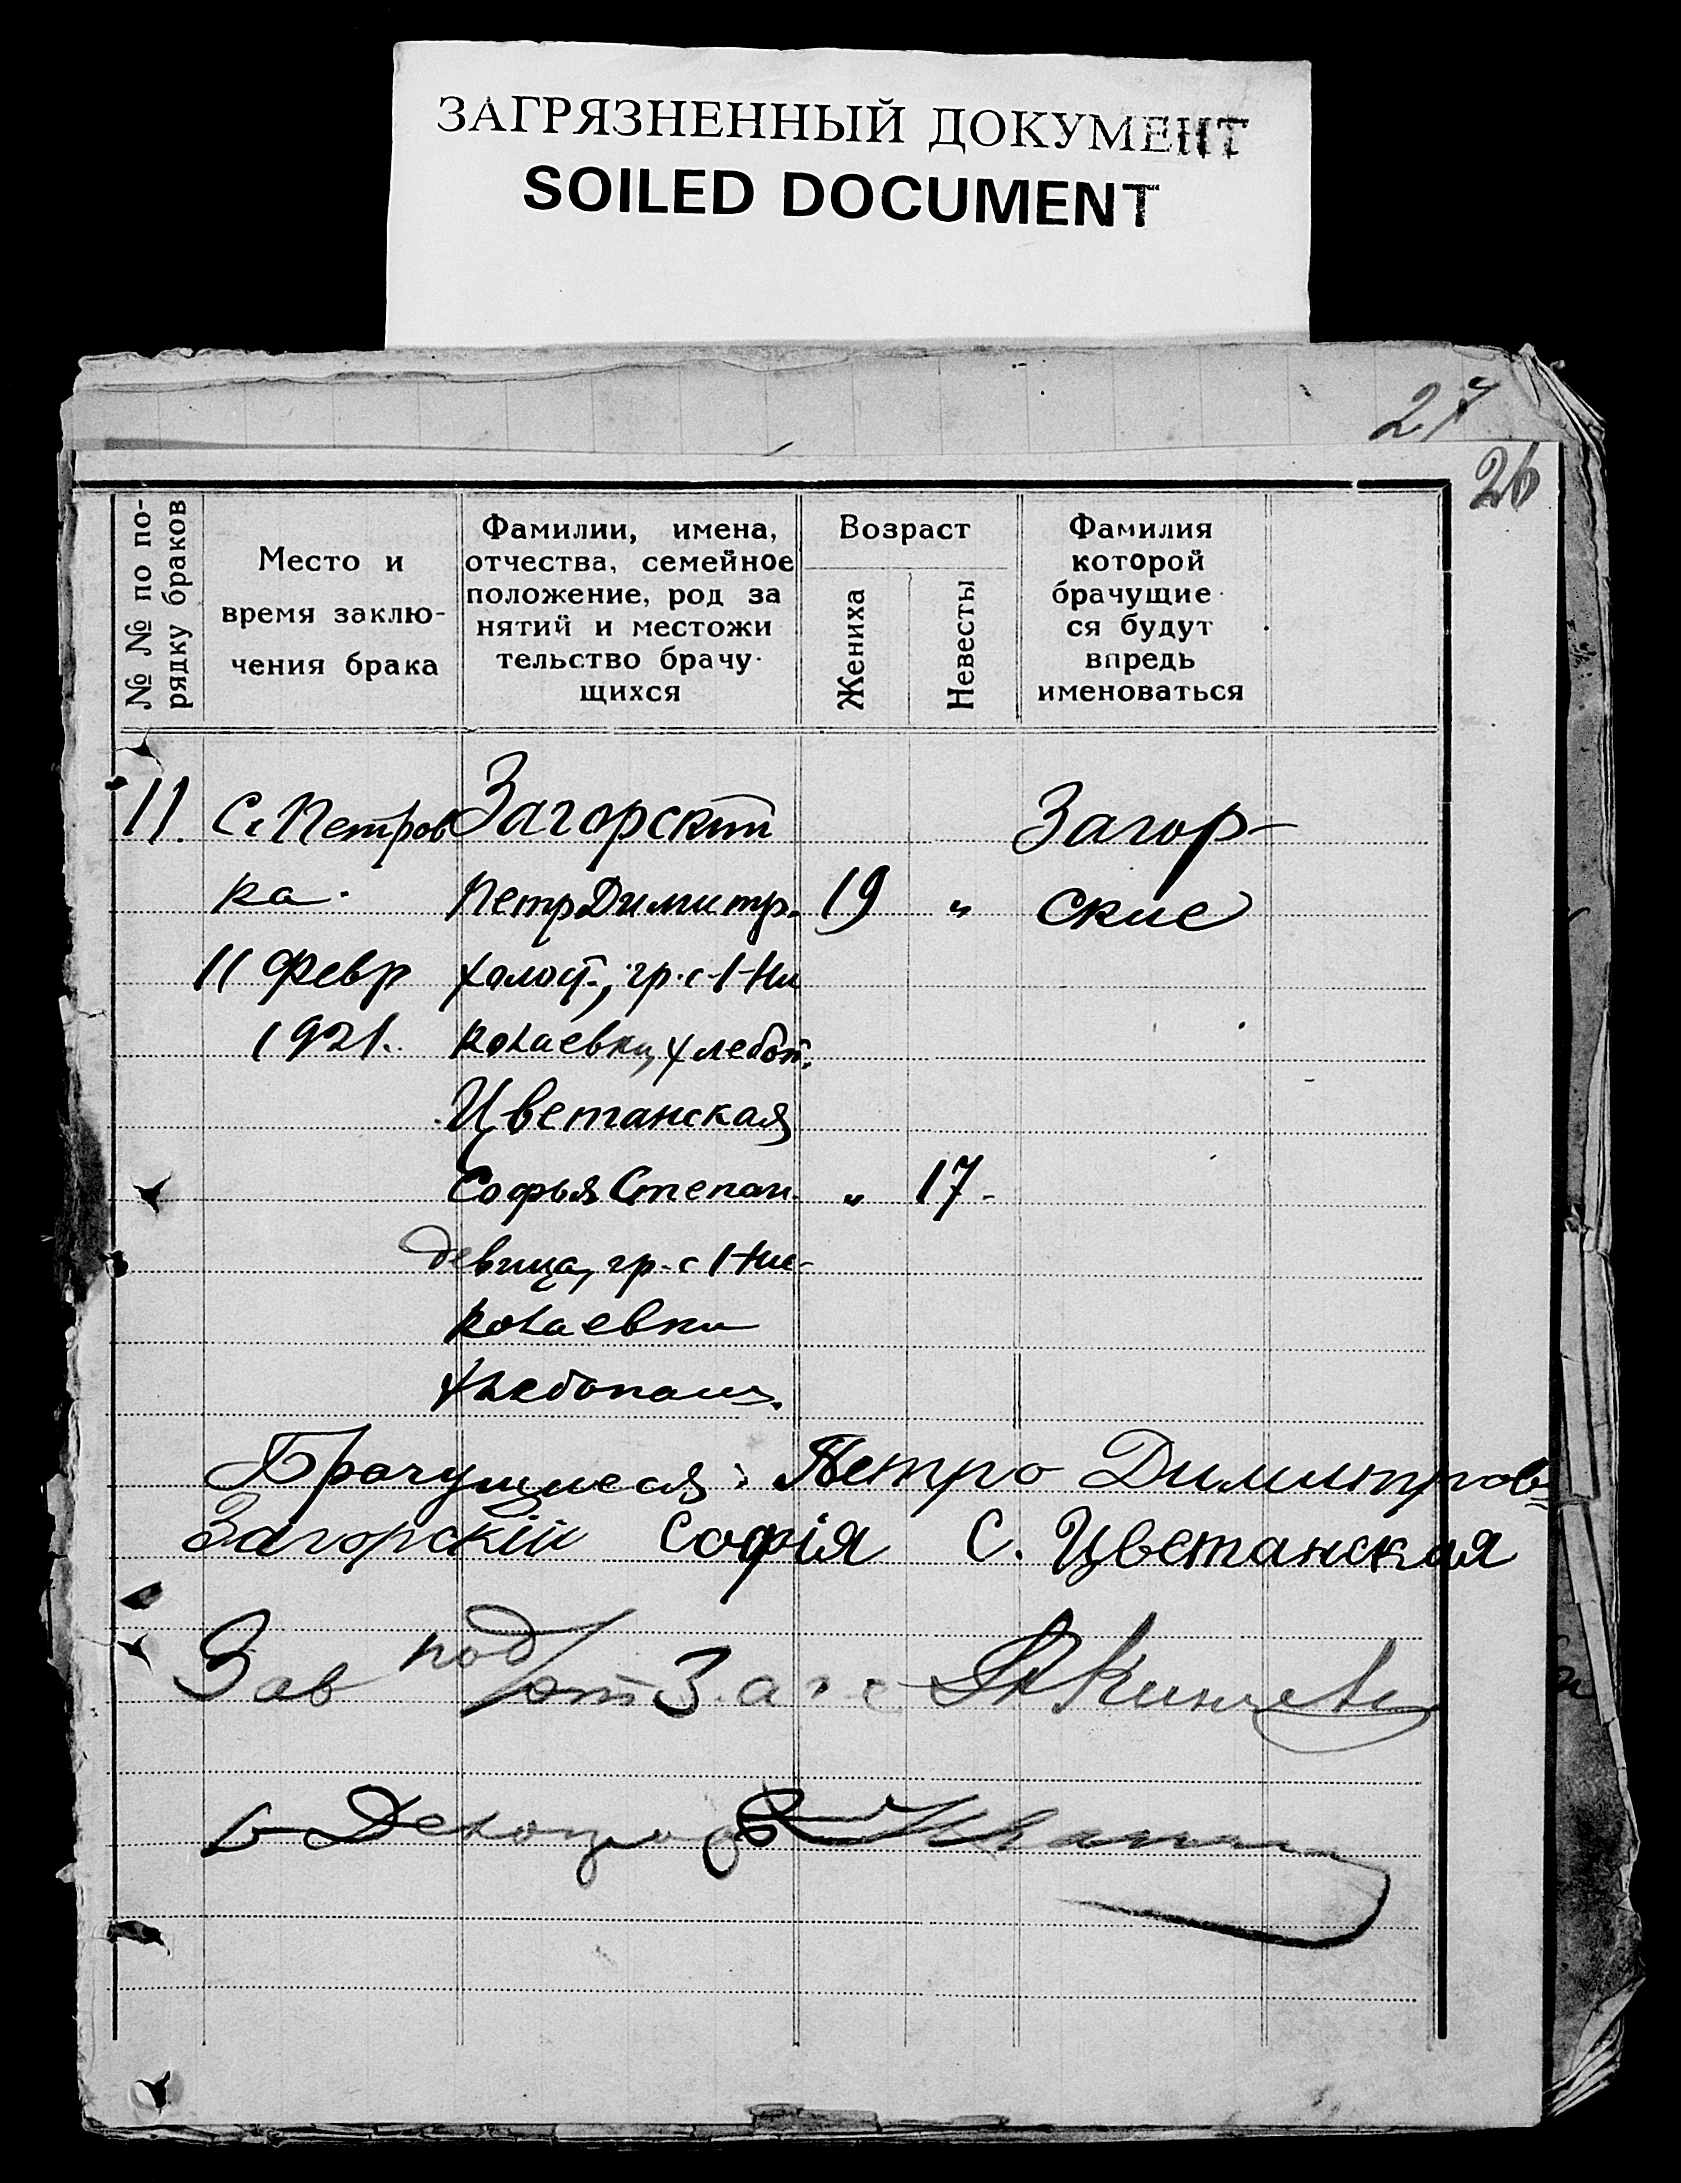 ЗАГРЯЗНЕННЫЙ ДОКУМЕНТ
SOILED DOCUMENT
27
26
№ № по по-
рядку браков
Место и
время заклю-
чения брака
Фамилии, имена,
отчества, семейное
положение, род за
нятий и местожи
тельство брачу-
щихся
Возраст
Жениха
Невесты
Фамилия
которой
брачущие-
ся будут
впредь
именоваться
11. С. Петров Загорский Загор-
ка. Петр Димитр. 19 " ские
11 Февр холост., гр. с. 1-Ни
1921. колаевки, хлебоп.
Цветанская
Софья Степан. " 17-
девица, гр. с 1-Ни-
колаевки
хлебопаш.
Брачущиеся: Петро Димитров
Загорскій Софія С. Цветанская
Зав под/от Загс
Делопр